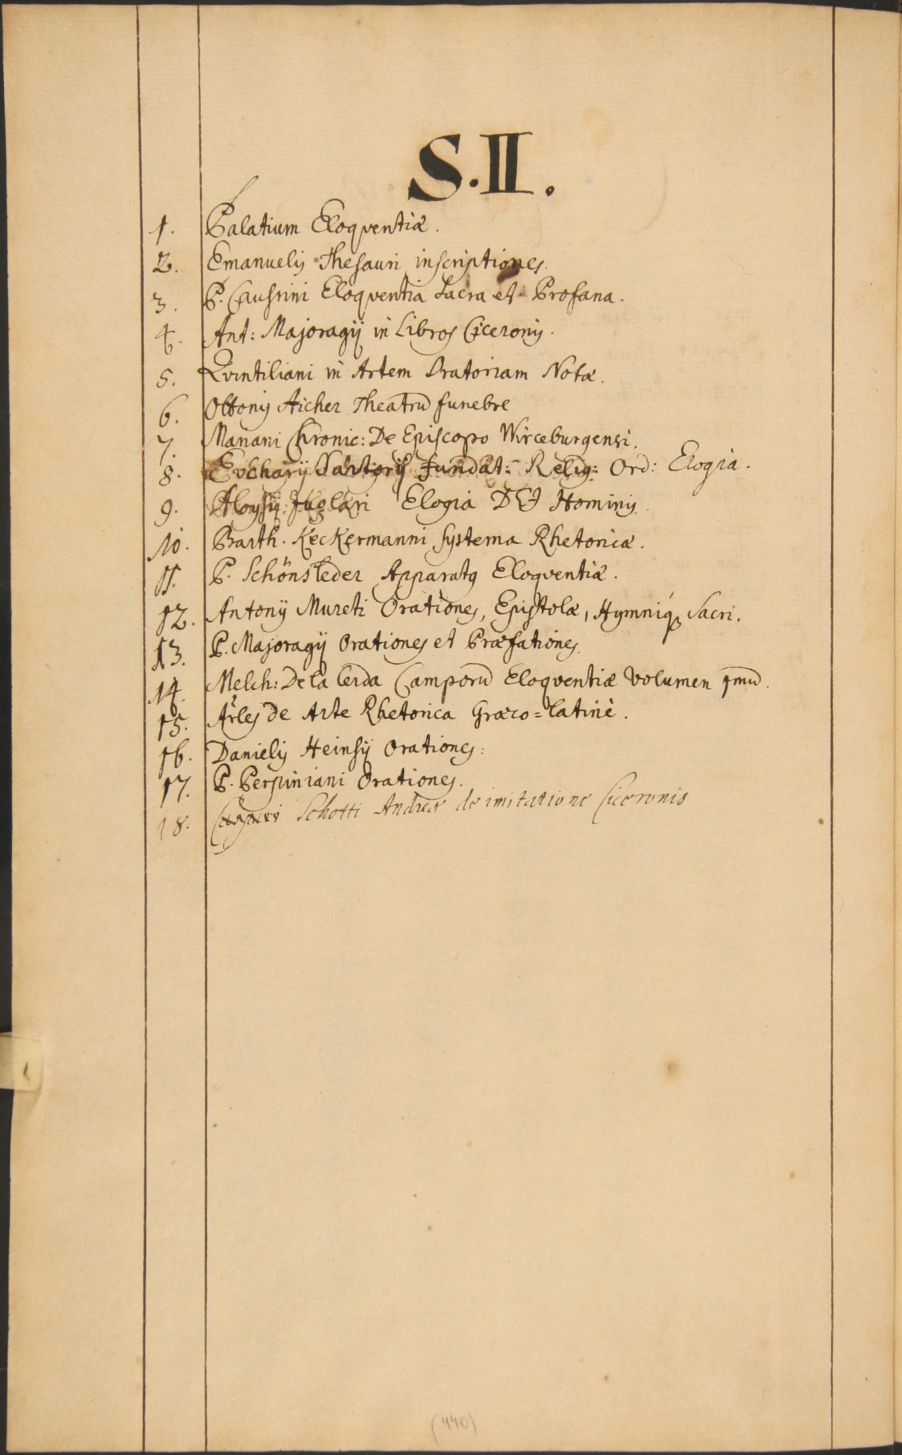 S.II.
1. Palatium Eloqventiæ.
2. Emanuelis Thesauri inscriptiones.
3. P. Causini Eloqventia Sacra et Profana.
4. Ant: Majoragij in Libros Ciceronis.
5. Qvintiliani in Artem Oratoriam Notæ.
6. Ottonis Aicher Theatrũ funebre
7. Mariani Chronic: De Episcopo Wirceburgensi.
8. Eucharij Sartorij Fundat: Relig: Ord: Elogia.
9. Aloysij Juglari Elogia DEI Hominis.
10. Barth. Keckermanni Systema Rhetoricæ.
11. P. Schönsleder Apparatus Eloqventiæ.
12. Antonij Mureti Orationes, Epistolæ, Hymniq, Sacri.
13. P. Majoragij Orationes et Præfationes.
14. Melch: De la Cerda Camporũ Eloqventiæ Volumen 1mũ.
15. Arles de Arte Rhetorica Græco=latinè.
16. Danielis Heinsij Orationes:
17. P. Perpiniani Orationes.
18. Schotti Andreæ de imitatione Ciceronis
(440)